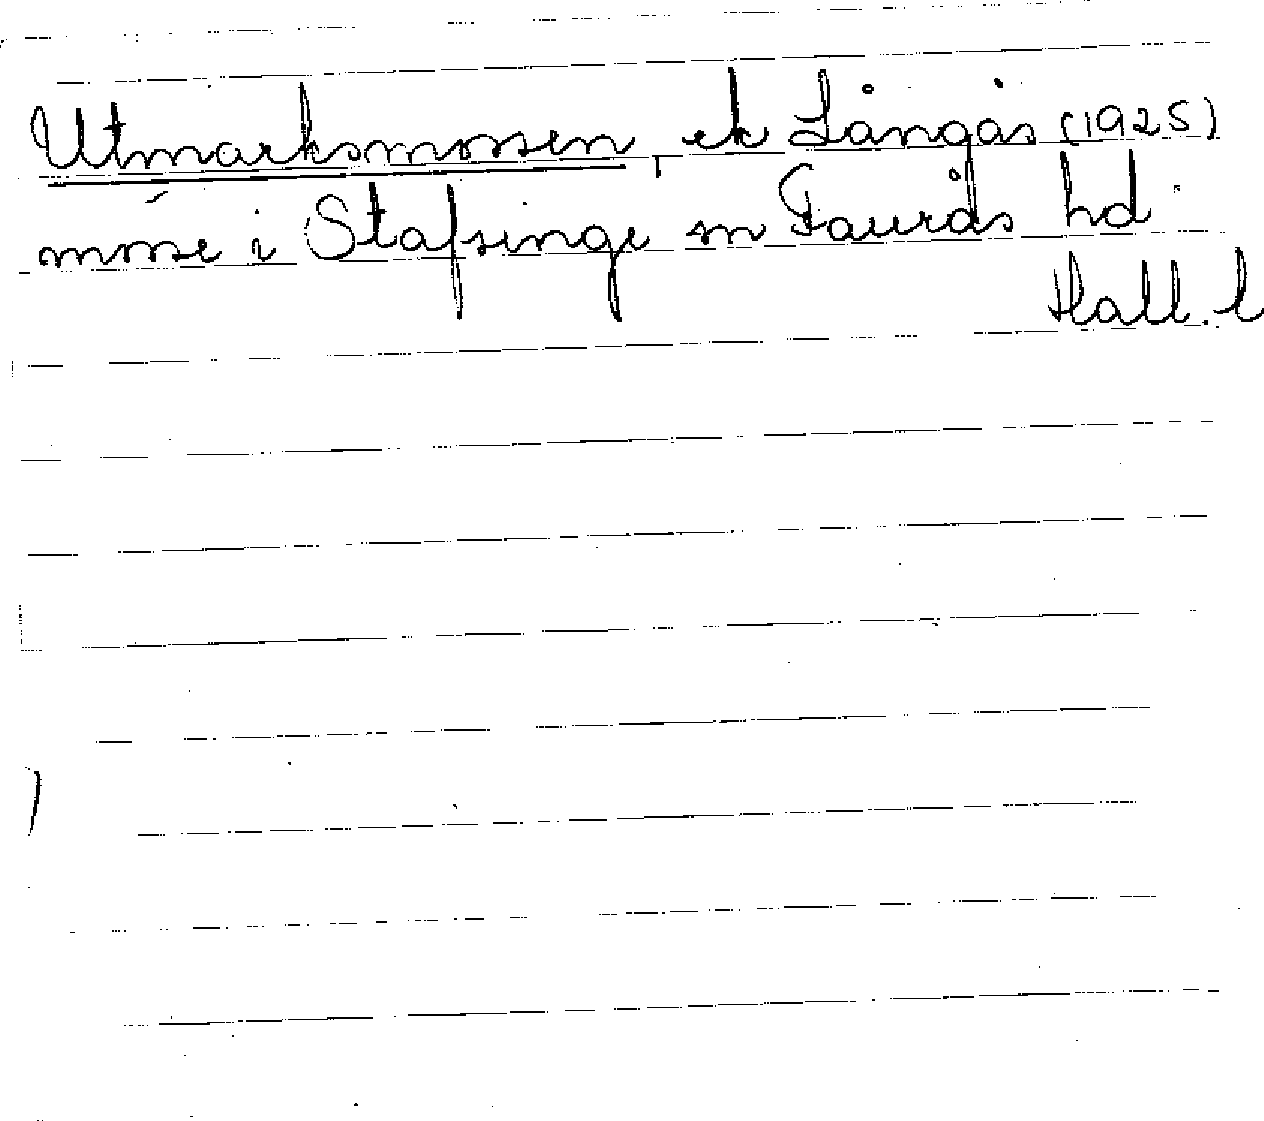 Utmarksmossen, ek Långås (1925)
mosse i Stafsinge sn Faurås hd
Hall. l